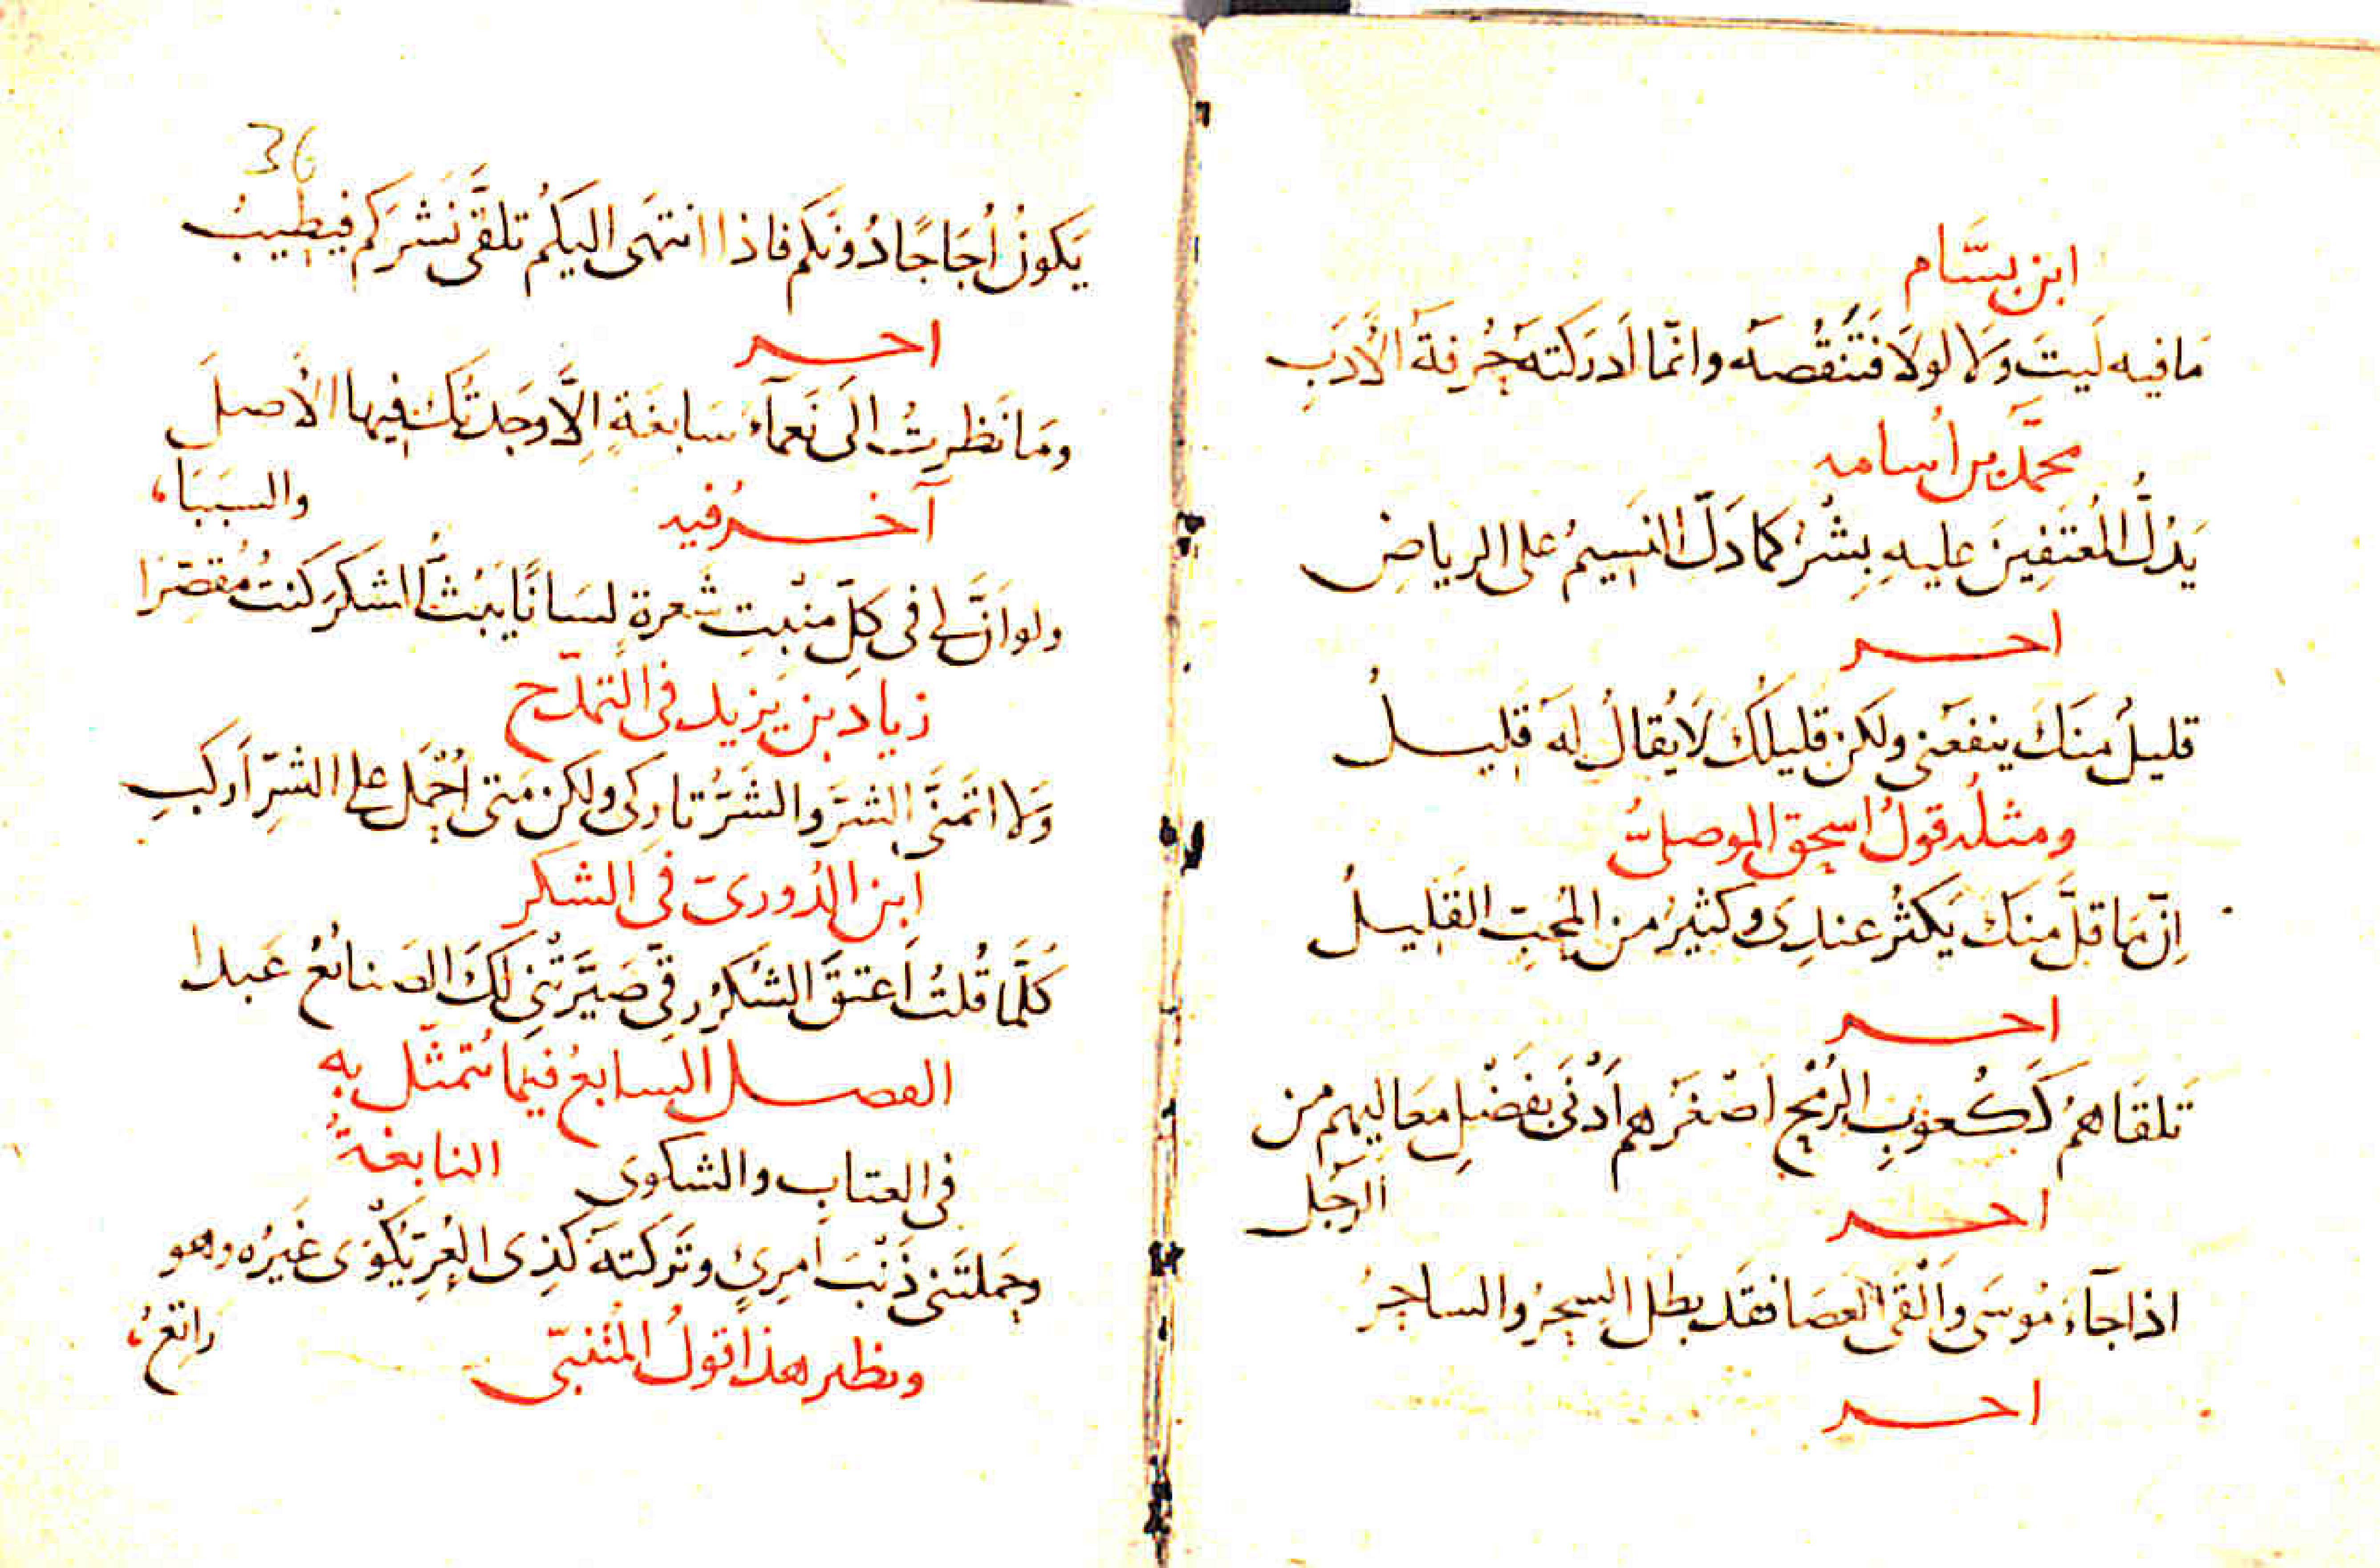 ابن بسَّام
مَافيه لَيتَ وَلَا لولَا فَتَنقُصَه وانّما اَدرَكَته حُرفَة الأَدَبِ
محمّد بن اُسامه
يَدُلُّ المُعتَفِينَ عليهِ بِشْرٌ كما دَلّ النَسِيمُ على الرياضِ
اخـــر
قليلٌ منكَ ينفعَنى ولكن قليلكَ لَا يُقالُ لهَ قليــلُ
ومثله قولُ اسحق الموصلىُّ
اِنّ مَا قلَّ منكَ يَكثُر عندِى وكثيرٌ من المُحِبّ القَليــلُ
اخـــر
تَلقَاهمُ كَكُعوبِ الرُمحِ اَصْغَرهم اَدْنَى بفَضْلِ مَعَاليهم من
الرجَل
اخـــر
اذا جآءَ مُوسَى وَاَلْقَى العَصَا فقَد بطَل السِحرُ والسَاحِرُ
اخـــر
36
يَكونُ اُجَاجًا دُونَكم فاذا انتهَى اليكُم تلقَّى نَشْرَكم فيَطِيبُ
اخـــر
ومَا نَظرتُ الَى نَعمآء سَابغَةٍ اِلَّا وَجَدتُكَ فيها الأَصلَ
والسبَبَا
آخـــرُ فيه
ولو اَنَّ لى فى كلِّ مَنْبتِ شَعرةٍ لسَانًا يَبُثُّ الشكرَ كنتُ مُقصّرَا
زياد بن يَزيد فى التَمدّح
وَلا اتمنَّى الشَرَّ والشَرُّ تارِكى ولكن مَتى اُحْمَل على الشرِّ اَركَبِ
ابن الدُورىّ فى الشكر
كُلّمَا قُلتُ اَعتقَ الشكرُ رِقّى صَيَّرَتْنِى لَكَ الصَنائعُ عَبدا
الفصــل السابعُ فيمَا يُتمثّل به
فى العتابِ والشكوى النابغةُ
وحَملتَنى ذَنْبَ امرِئٍ وتَركتَه كَذِى العُرِّ يُكْوَى غَيرُه وهو
راتعُ
ونظير هذا قولُ المُتَنبّى